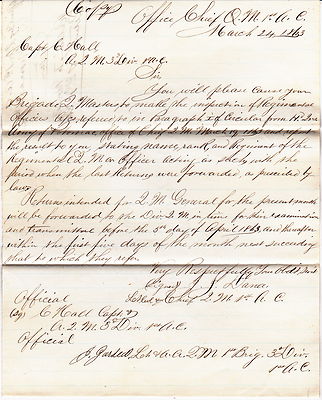 (Copy)
Office, Chief Q. M. 1st A. C.
March 24, 1863
Capt. C Hall
A. Q. M. 3d Div 1st A. C.
Sir
You will please cause your
Brigade Q. Masters to make the inspection of Regimental
Officers referred to in Paragraph of Circular from
Army Office of Chief Q. M. March and report
the result to you, stating name, rank and Regiment of the
Regimental Q. M. or Officer acting as such, with the
period when the last Returns were forwarded, as prescribed by
law.
Returns intended for Q. M. General for the present month
will be forwarded to the Div. Q. M. in time for his examination
and transmittal before the 5th day of April 1863, and thereafter
within the first five days of the month next succeeding
that to which they refer.
Very Respectfully Your Obdt. Servt
J. J. Dana
Lt Col & Chief Q. M 1st A. C
Official
C Hall Capt &
A. Q. M. 3d Div. 1st A. C.
Official
J. Lt & A. A. Q. M 1st Brig. 3d Div.
1st A. C.